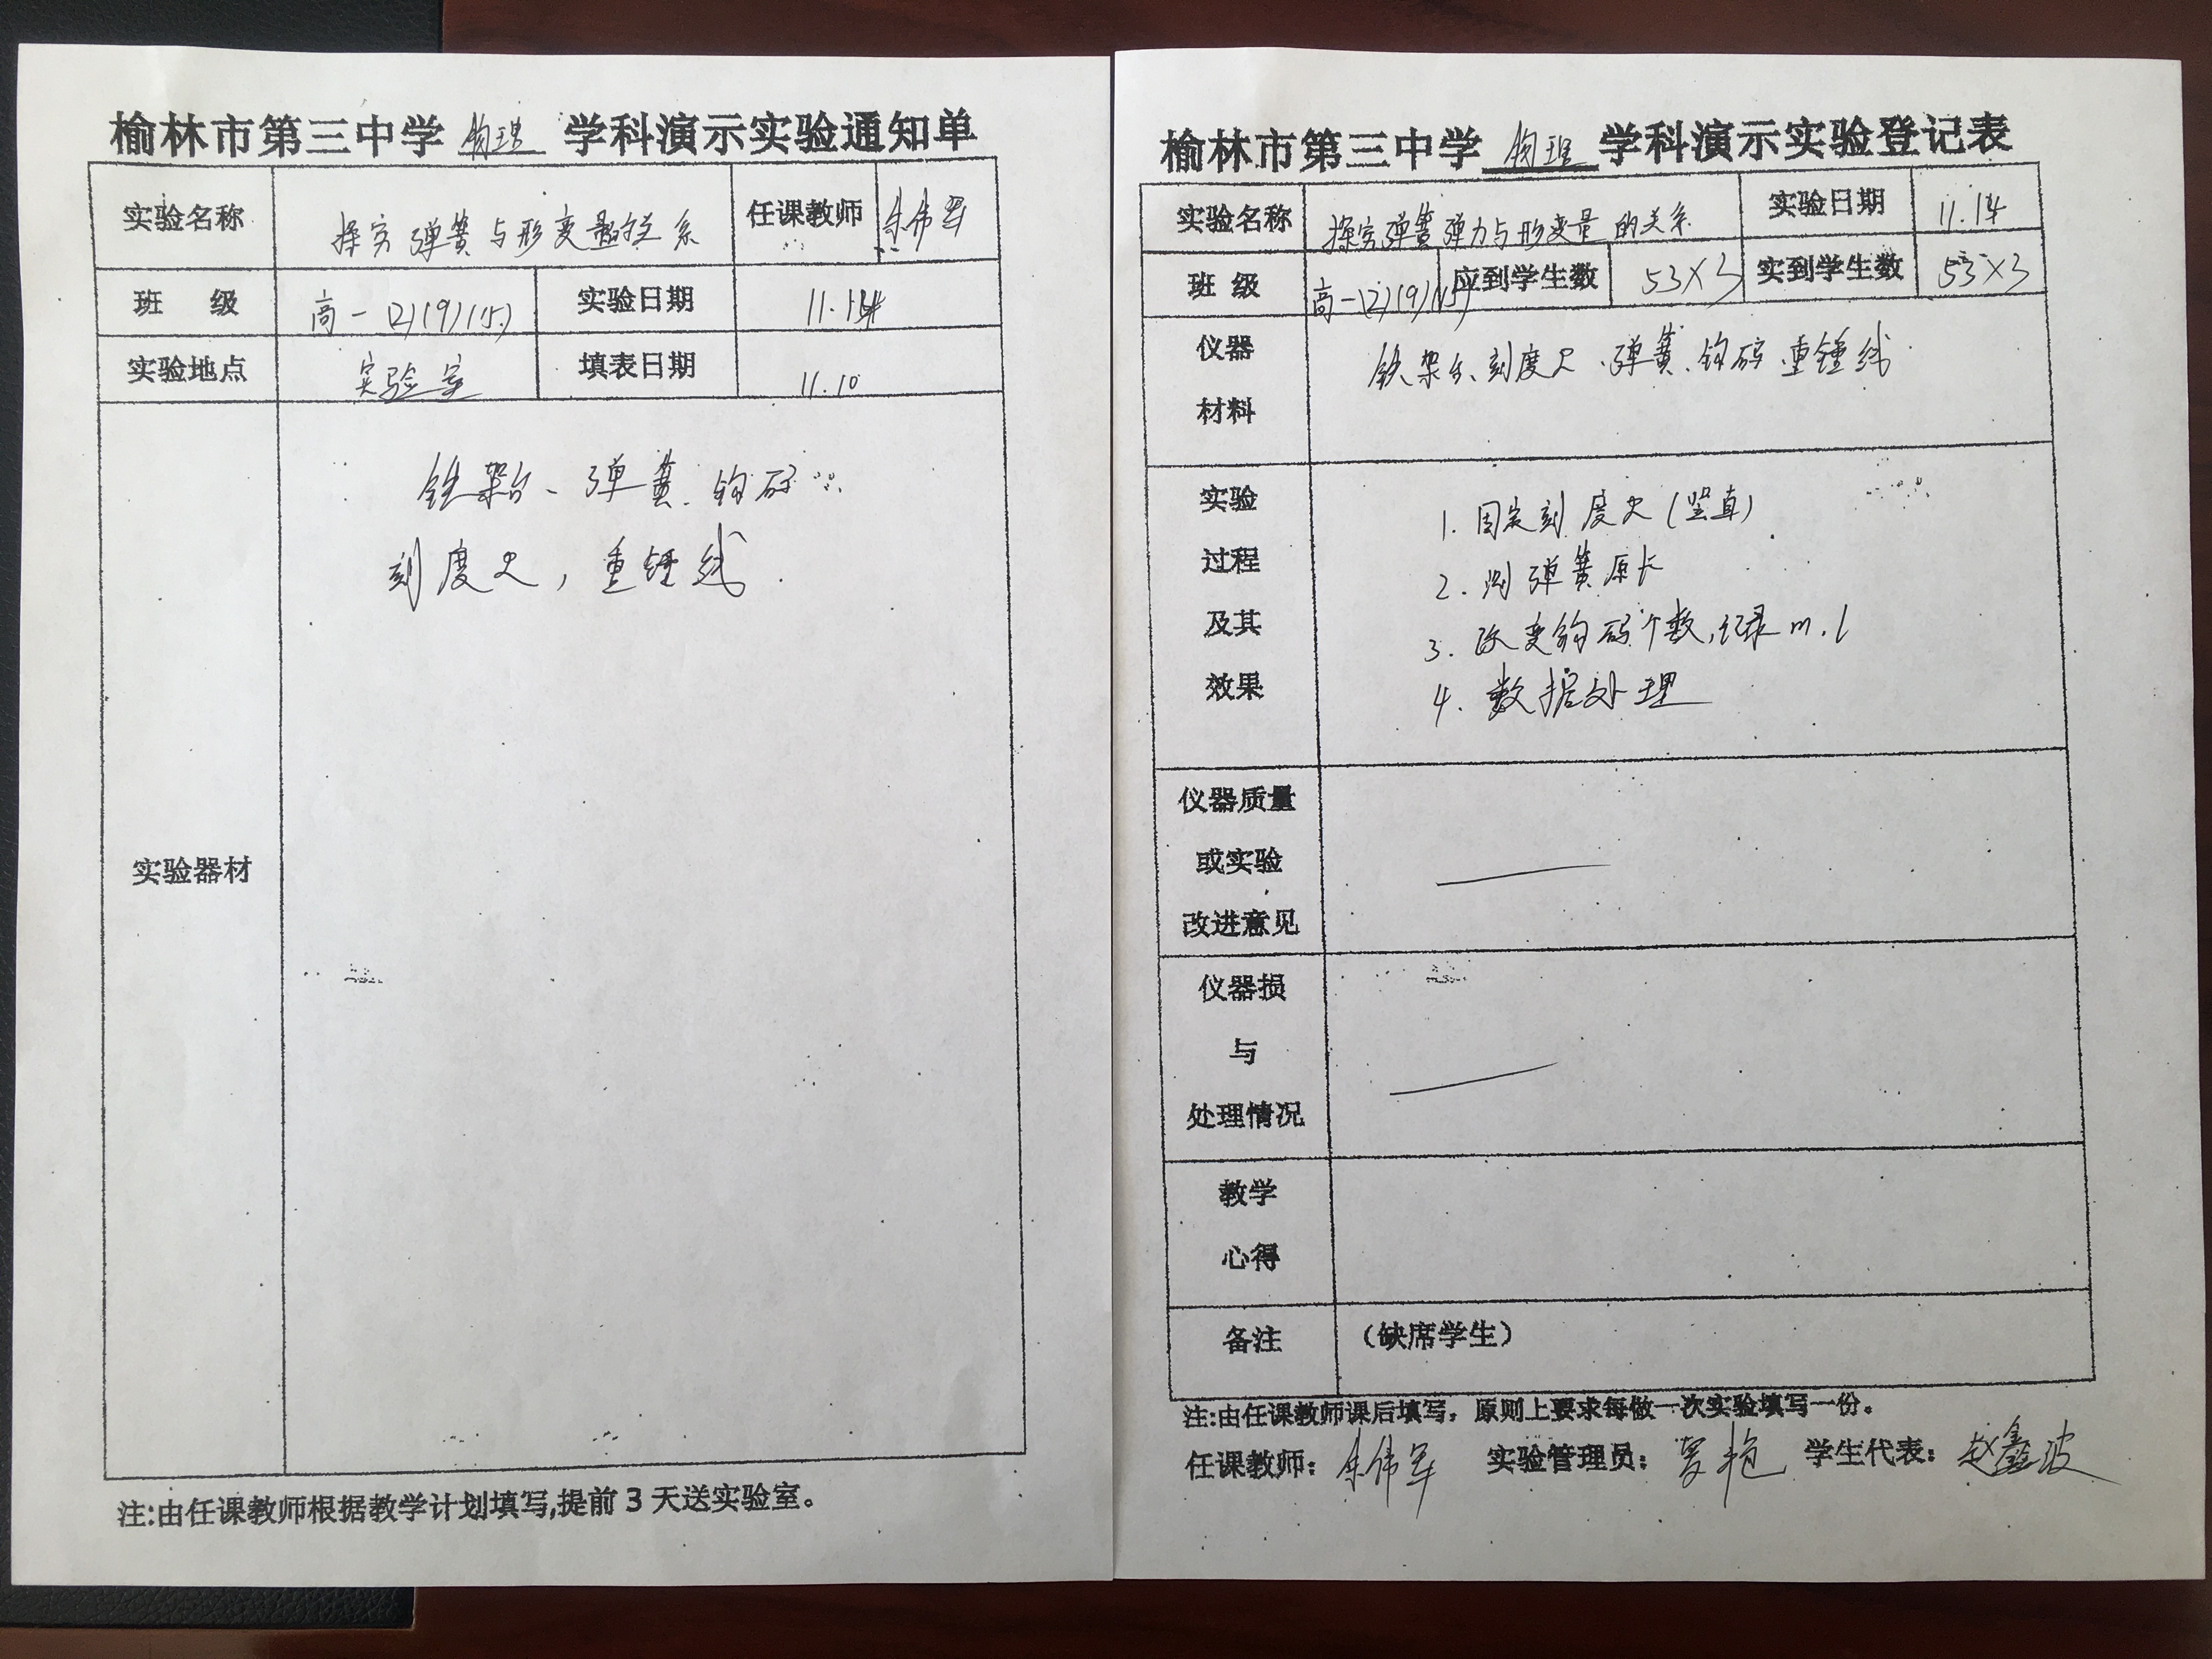 榆林市第三中学 物理 学科演示实验通知单
实验名称 探究弹簧与形变量的关系 任课教师 余伟军
班 级 高一(2)(9)(15) 实验日期 11.14
实验地点 实验室 填表日期 11.10
实验器材
铁架台、弹簧、钩码
刻度尺,重锤线.
注:由任课教师根据教学计划填写,提前3天送实验室。
榆林市第三中学 物理 学科演示实验登记表
实验名称 探究弹簧弹力与形变量的关系 实验日期 11.14
班 级 高一(2)(9)(15) 应到学生数 53×3 实到学生数 53×3
仪器
材料
铁架台、刻度尺、弹簧、钩码、重锤线
实验
过程
及其
效果
1. 固定刻度尺(竖直)
2. 测弹簧原长
3. 改变钩码个数,记录m.l
4. 数据处理
仪器质量
或实验
改进意见
仪器损
与
处理情况
教学
心得
备注 (缺席学生)
注:由任课教师课后填写,原则上要求每做一次实验填写一份。
任课教师: 余伟军 实验管理员: 学生代表: 赵鑫波